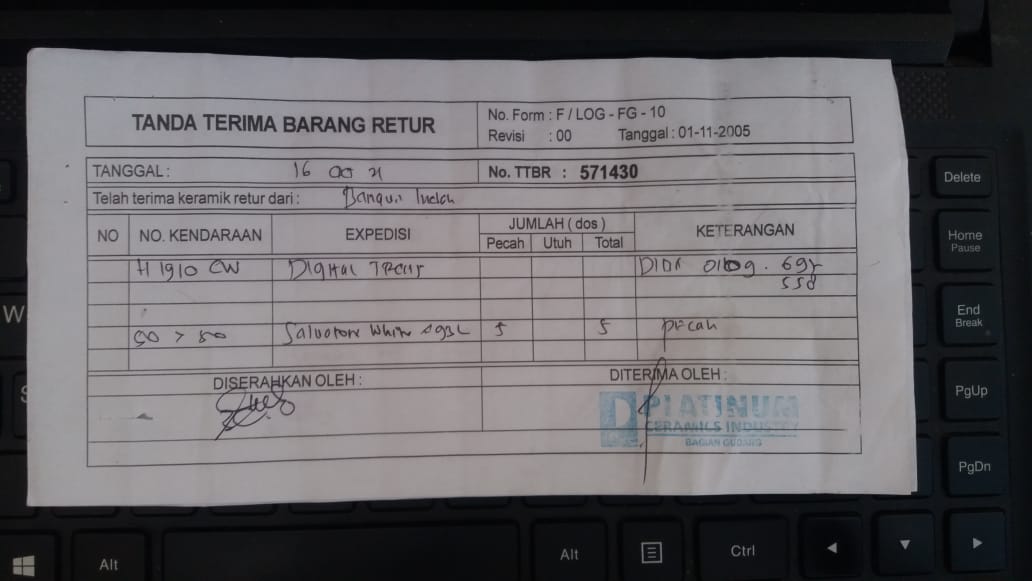 TANDA TERIMA BARANG RETUR
No. Form : F / LOG - FG - 10
Revisi : 00 Tanggal : 01-11-2005
TANGGAL : 16
No. TTBR : 571430
Telah terima keramik retur dari : Bangun Indah
NO NO. KENDARAAN EXPEDISI JUMLAH ( dos ) KETERANGAN
Pecah Utuh Total
H 1910 CW Digital Trans
50 x 50 Salvatore White 5 5 pecah
DISERAHKAN OLEH : DITERIMA OLEH :
PLATINUM
CERAMICS INDUSTRY
BAGIAN GUDANG
Delete
Home
Pause
End
Break
PgUp
PgDn
W
Alt
Alt
Ctrl